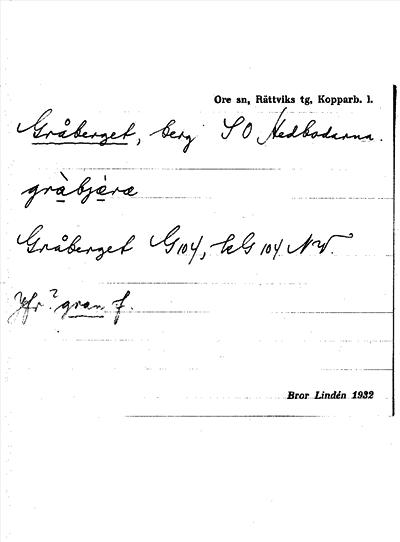 Ore sn, Rättviks tg, Kopparb. l.
Gråberget, berg S O Hedbodarna.
gràbjæ̀ræ
Gråberget G 104, kG 104 NV.
Jfr? gran f.
Bror Lindén 1932